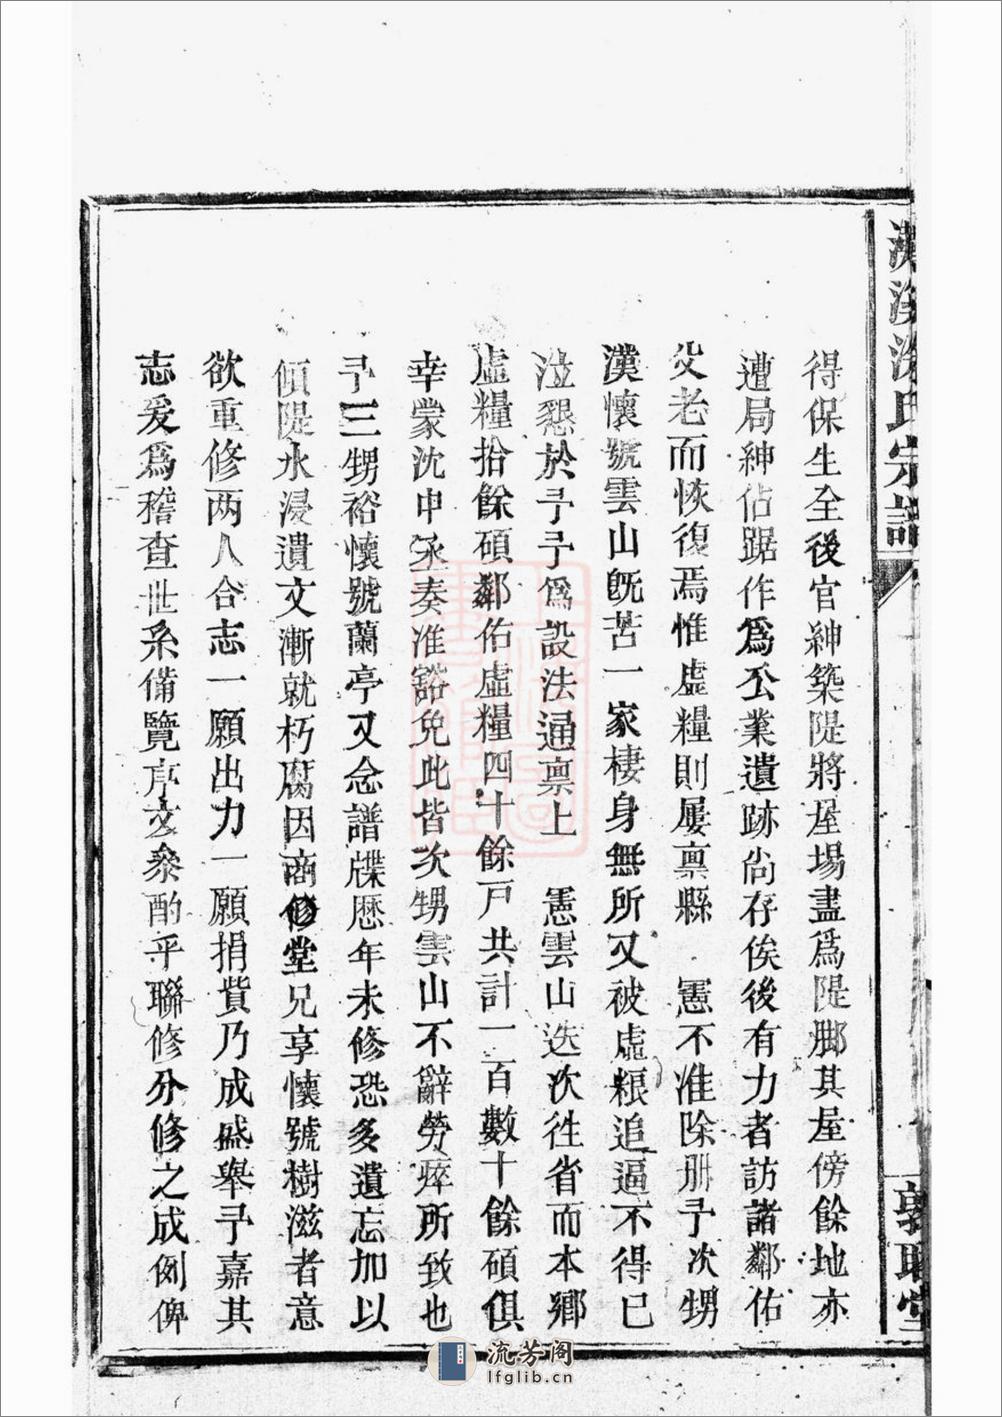 得保生全後官紳築隄將屋場盡爲隄脚其屋傍餘地亦
遭局紳佔踞作爲公業遺跡尙存俟後有力者訪諸鄰佑
父老而恢復焉惟虛糧則屢禀縣 憲不准除册予次甥
漢懷號雲山旣苦一家棲身無所又被虛粮追逼不得已
泣懇於予予爲設法通禀上 憲雲山迭次徃省而本鄉
虛糧拾餘碩鄰佑虛糧四十餘戸共計一百數十餘碩俱
幸蒙沈中丞奏准豁免此皆次甥雲山不辭勞瘁所致也
予三甥裕懷號蘭亭又念譜牒歷年未修恐多遺忘加以
傾隄水浸遺文漸就朽腐因商修堂兄享懷號樹滋者意
欲重修两人合志一願出力一願捐貲乃成盛舉予嘉其
志爰爲稽查世系備覽序文叅酌乎聯修分修之成例俾
氏宗譜
敦 堂
流芳阁
lfglib.cn